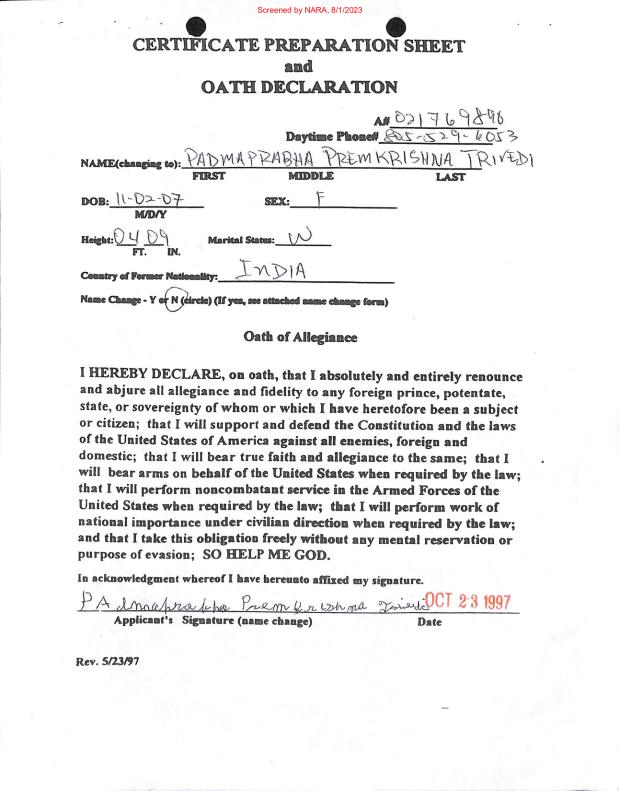 Screened by NARA, 8/1/2023
CERTIFICATE PREPARATION SHEET
and
OATH DECLARATION
A# 021769898
Daytime Phone# 805-529-6053
NAME(changing to): PADMAPRABHA PREMKRISHNA TRIVEDI
FIRST MIDDLE LAST
DOB: 11-02-07 SEX: F
M/D/Y
Height: 04 09 Marital Status: W
FT. IN.
Country of Former Nationality: INDIA
Name Change - Y or N (circle) (If yes, see attached name change form)
Oath of Allegiance
I HEREBY DECLARE, on oath, that I absolutely and entirely renounce
and abjure all allegiance and fidelity to any foreign prince, potentate,
state, or sovereignty of whom or which I have heretofore been a subject
or citizen; that I will support and defend the Constitution and the laws
of the United States of America against all enemies, foreign and
domestic; that I will bear true faith and allegiance to the same; that I
will bear arms on behalf of the United States when required by the law;
that I will perform noncombatant service in the Armed Forces of the
United States when required by the law; that I will perform work of
national importance under civilian direction when required by the law;
and that I take this obligation freely without any mental reservation or
purpose of evasion; SO HELP ME GOD.
In acknowledgment whereof I have hereunto affixed my signature.
Padmaprabha Premkrishna Trivedi OCT 23 1997
Applicant's Signature (name change) Date
Rev. 5/23/97